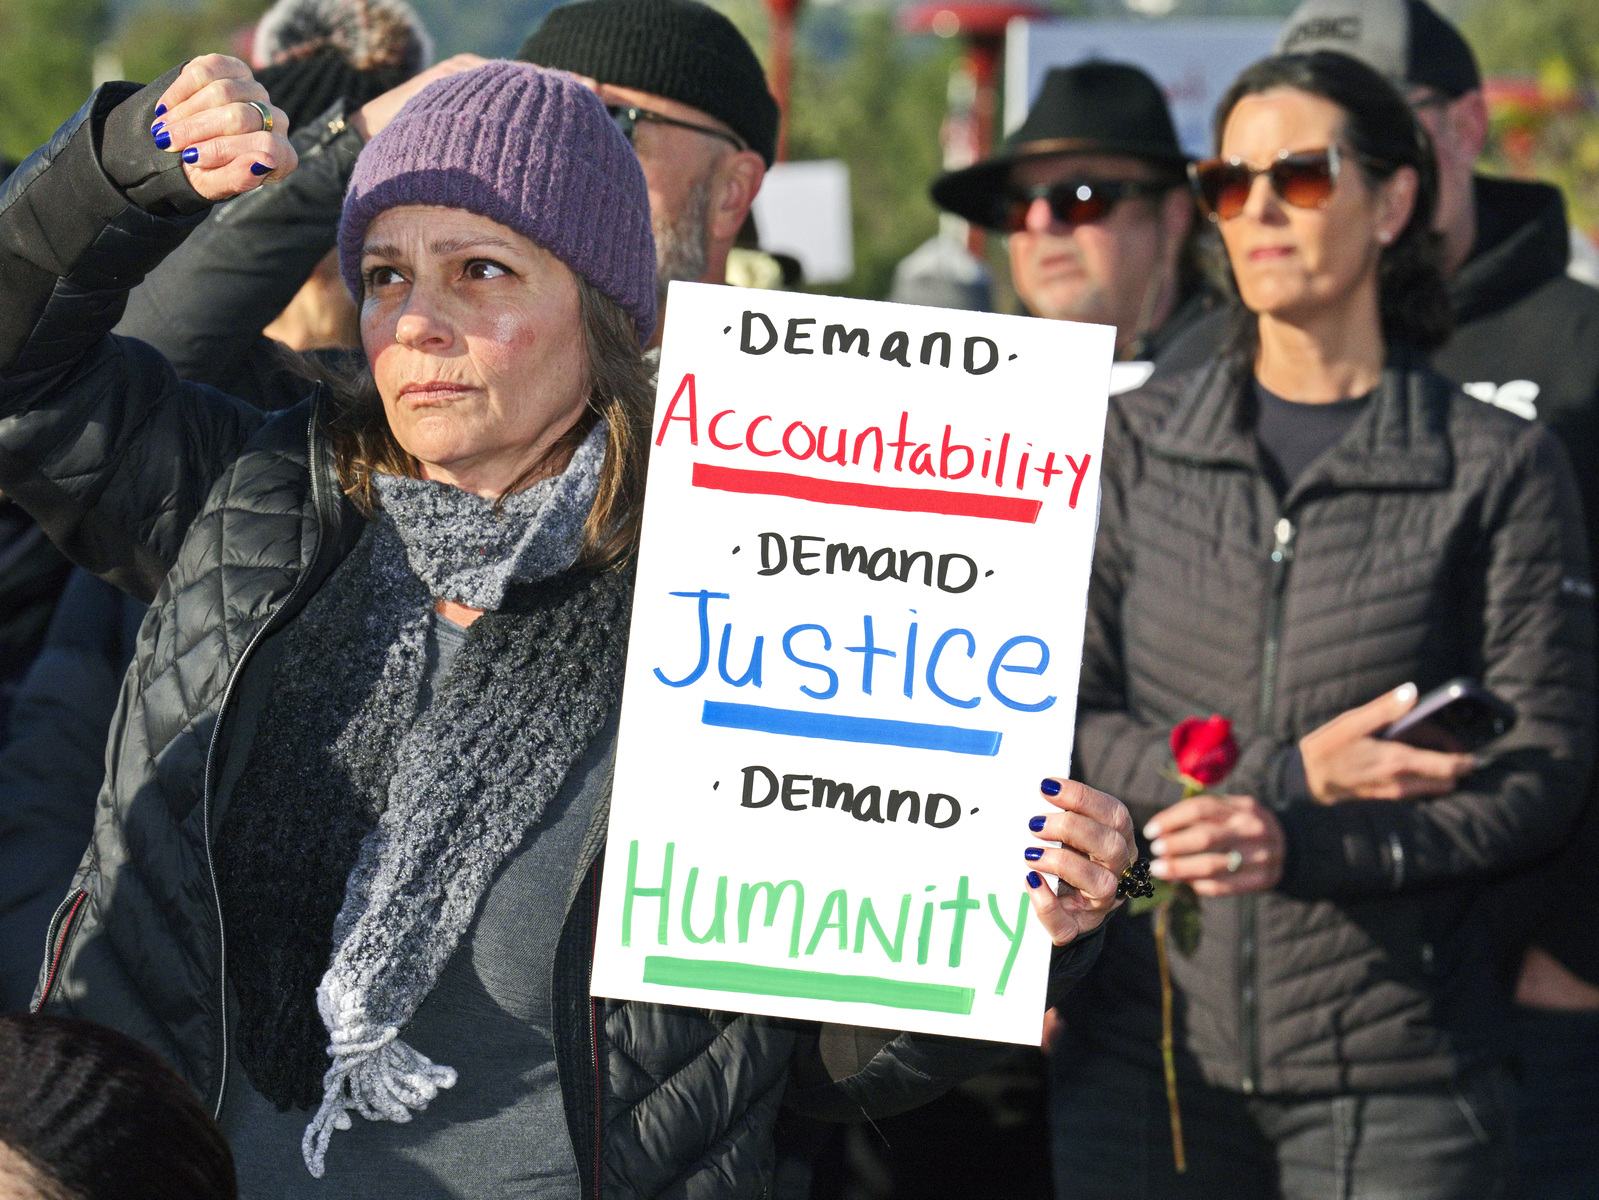 ·DEmanD·
Accountability
·DEmanD·
Justice
·DEmanD·
HumANity